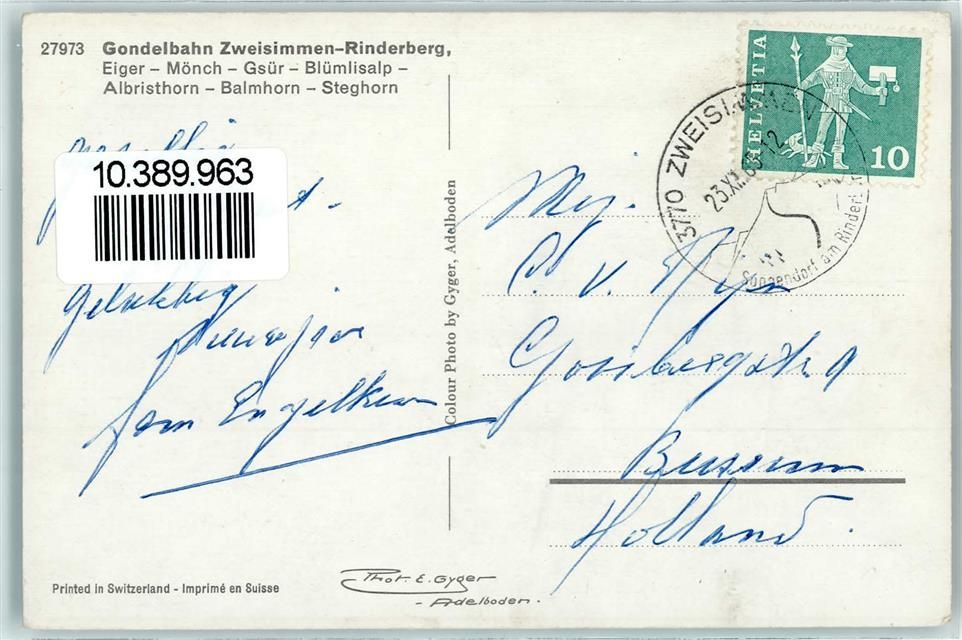 27973 Gondelbahn Zweisimmen-Rinderberg,
Eiger – Mönch – Gsür – Blümlisalp –
Albristhorn – Balmhorn – Steghorn
10.389.963
Gelukkig
fam Engelkens
Colour Photo by Gyger, Adelboden
HELVETIA
10
3770 ZWEISIMMEN
23.XII.65-12
am Rinderberg
Mej.
C. v. Rijn
Bussum
Holland.
Printed in Switzerland - Imprimé en Suisse
Phot. E. Gyger
- Adelboden -